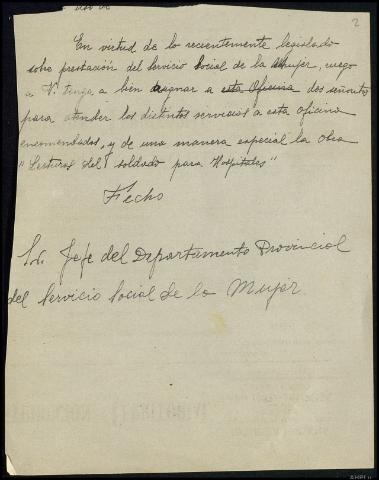 2
En virtud de lo recientemente legislado
sobre prestación del Servicio Social de la Mujer, ruego
a V. tenga a bien asignar a esta Oficina dos señoritas
para atender los distintos servicios a esta oficina
encomendados, y de una manera especial la Obra
"Lecturas del soldado para Hospitales"
Fecho
Sr. Jefe del Departamento Provincial
del Servicio Social de la Mujer.